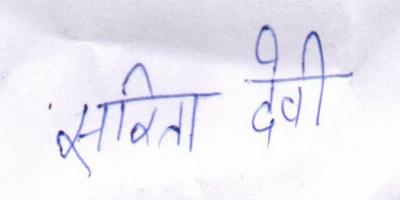 सरिता देवी